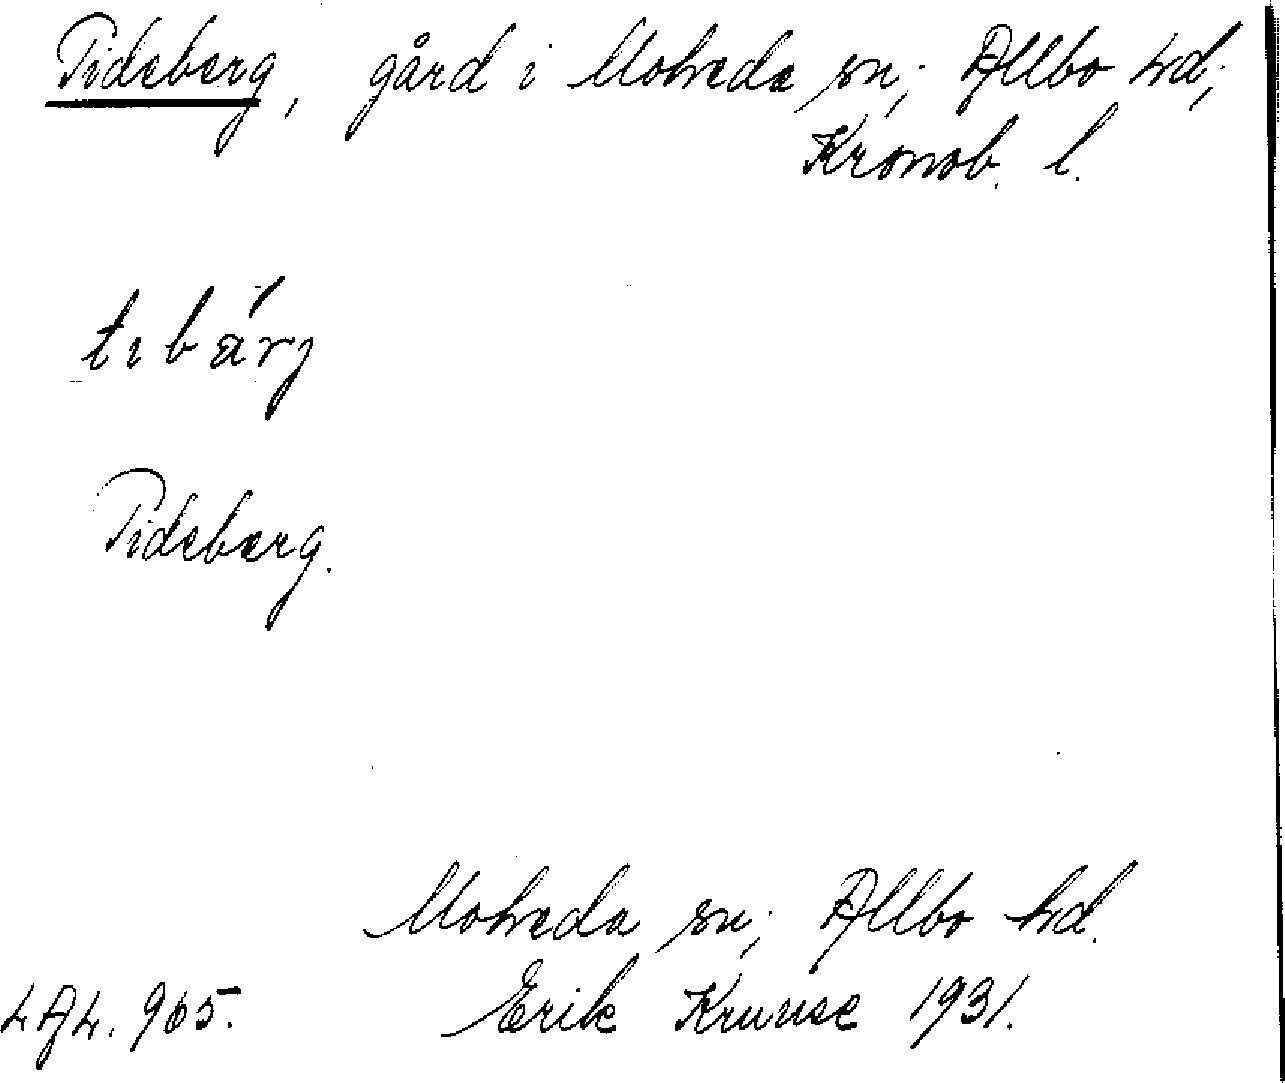 Tideberg, gård i Moheda sn; Allbo hd;
Kronob. l.
tibärj
Tideberg.
Moheda sn; Allbo hd.
LAL. 965. Erik Kruuse 1931.